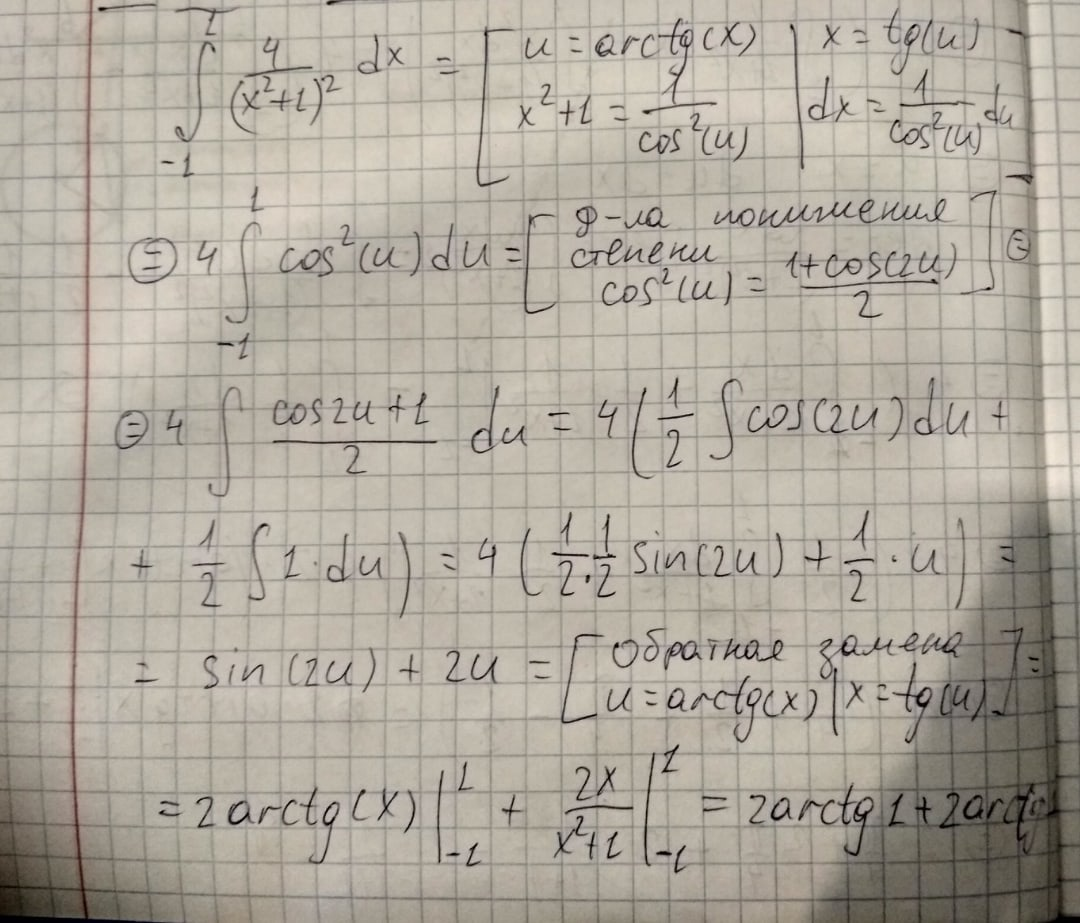 ∫_{-1}^{1} 4/(x²+1)² dx = [ u = arctg(x) | x = tg(u)
x²+1 = 1/cos²(u) | dx = 1/cos²(u) du ]
⊜ 4 ∫_{-1}^{1} cos²(u) du = [ ф-ла понижения
степени
cos²(u) = (1+cos(2u))/2 ] ⊜
⊜ 4 ∫ (cos2u+1)/2 du = 4( 1/2 ∫ cos(2u) du +
+ 1/2 ∫ 1·du ) = 4( 1/2 · 1/2 sin(2u) + 1/2 · u ) =
= sin(2u) + 2u = [ Обратная замена
u = arctg(x) | x = tg(u) ] =
= 2arctg(x) |_{-1}^{1} + 2x/(x²+1) |_{-1}^{1} = 2arctg 1 + 2arctg